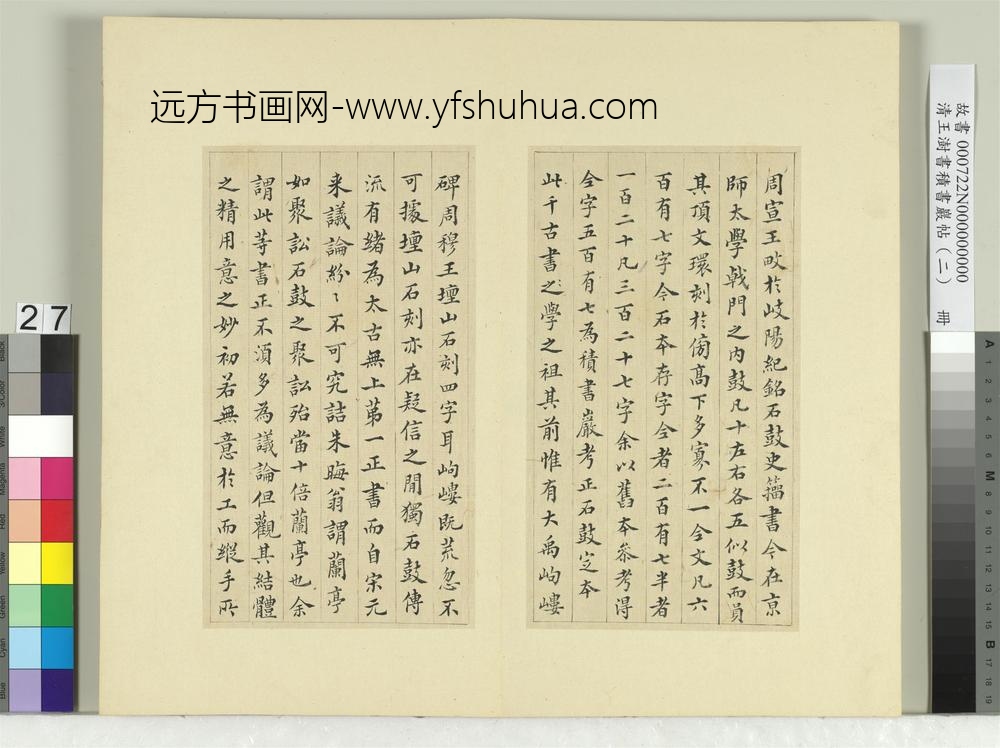 远方书画网-www.yfshuhua.com
故書 000722N000000000
清王澍書積書巖帖(二) 冊
周宣王畋於岐陽紀銘石鼓史籀書今在京
師太學戟門之內鼓凡十左右各五似鼓而員
其頂文環刻於傍高下多寡不一全文凡六
百有七字今石本存字全者二百有七半者
一百二十凡三百二十七字余以舊本叅考得
全字五百有七為積書巖考正石鼓定本
此千古書之學之祖其前惟有大禹岣嶁
碑周穆王壇山石刻四字耳岣嶁既荒忽不
可援壇山石刻亦在疑信之間獨石鼓傳
流有緒為太古無上苐一正書而自宋元
来議論紛〻不可究詰朱晦翁謂蘭亭
如聚訟石鼓之聚訟殆當十倍蘭亭也余
謂此等書正不須多為議論但觀其結體
之精用意之妙初若無意於工而縱手所
27
Black
3/Color
White
Magenta
Red
Yellow
Green
Cyan
Blue
A
1
2
3
4
5
6
M
8
9
10
11
12
13
14
15
B
17
18
19